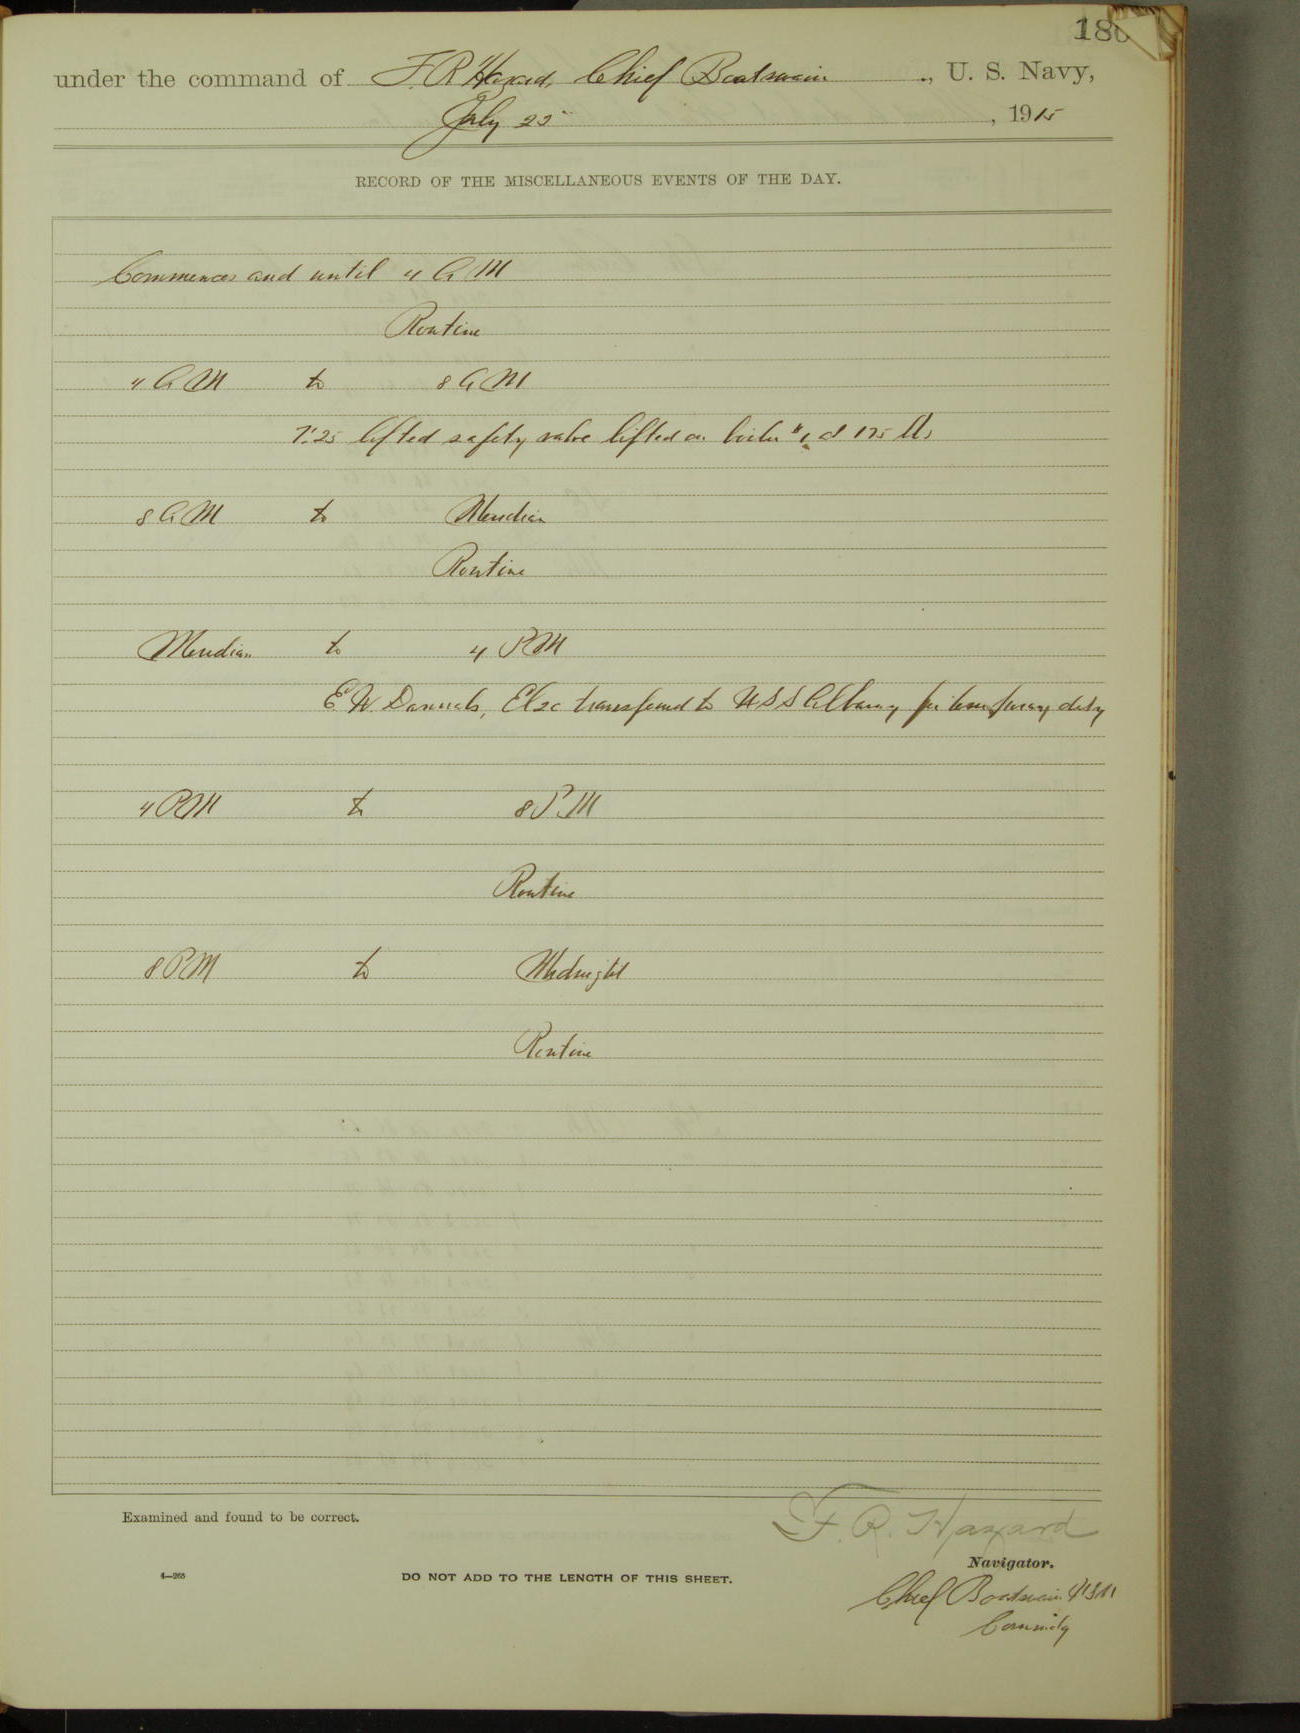 180
under the command of F. R. Hazard, Chief Boatswain, U. S. Navy,
July 25, 1915
RECORD OF THE MISCELLANEOUS EVENTS OF THE DAY.
Commences and until 4 A M
Routine
4 A M to 8 A M
7:25 lifted safety valve lifted on boiler #1 at 175 lbs
8 A M to Meridian
Routine
Meridian to 4 P M
E. W. Elec transferred to U S S Albany for temporary duty
4 P M to 8 P M
Routine
8 P M to Midnight
Routine
Examined and found to be correct.
F. R. Hazard
Navigator.
4—265
DO NOT ADD TO THE LENGTH OF THIS SHEET.
Chief Boatswain USN
Commdg